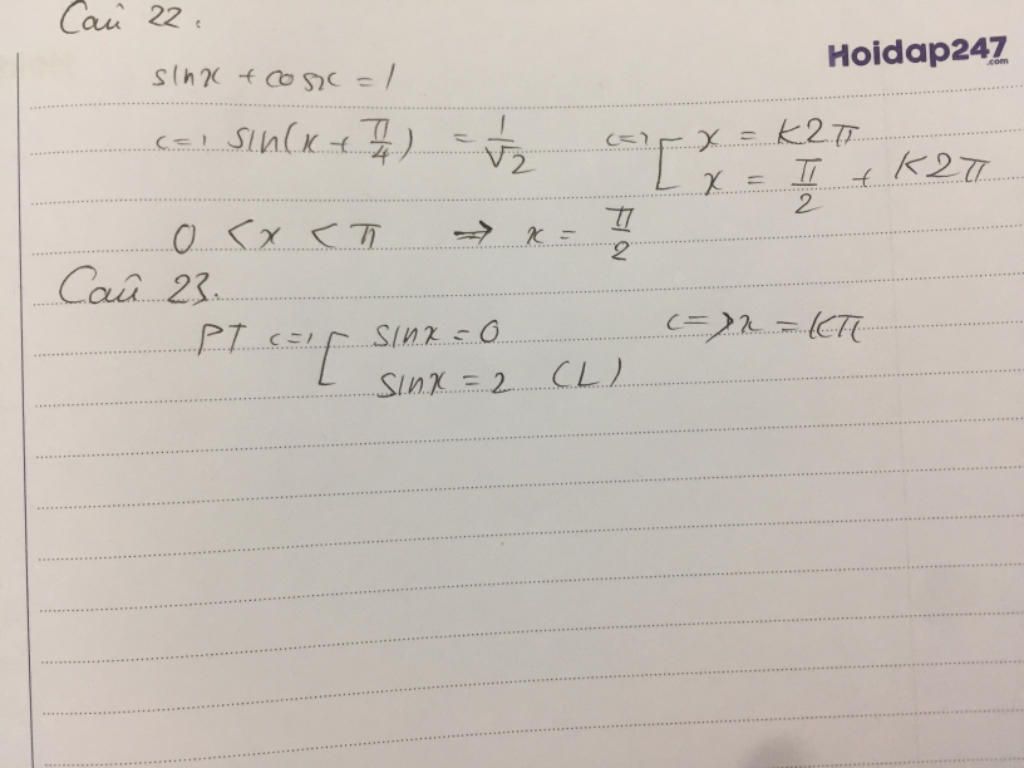 Câu 22.
Hoidap247
.com
sinx + cosx = 1
<=> sin(x + π/4) = 1/√2 <=> [ x = K2π
x = π/2 + K2π
0 < x < π => x = π/2
Câu 23.
PT <=> [ sinx = 0 <=> x = Kπ
sinx = 2 (L)